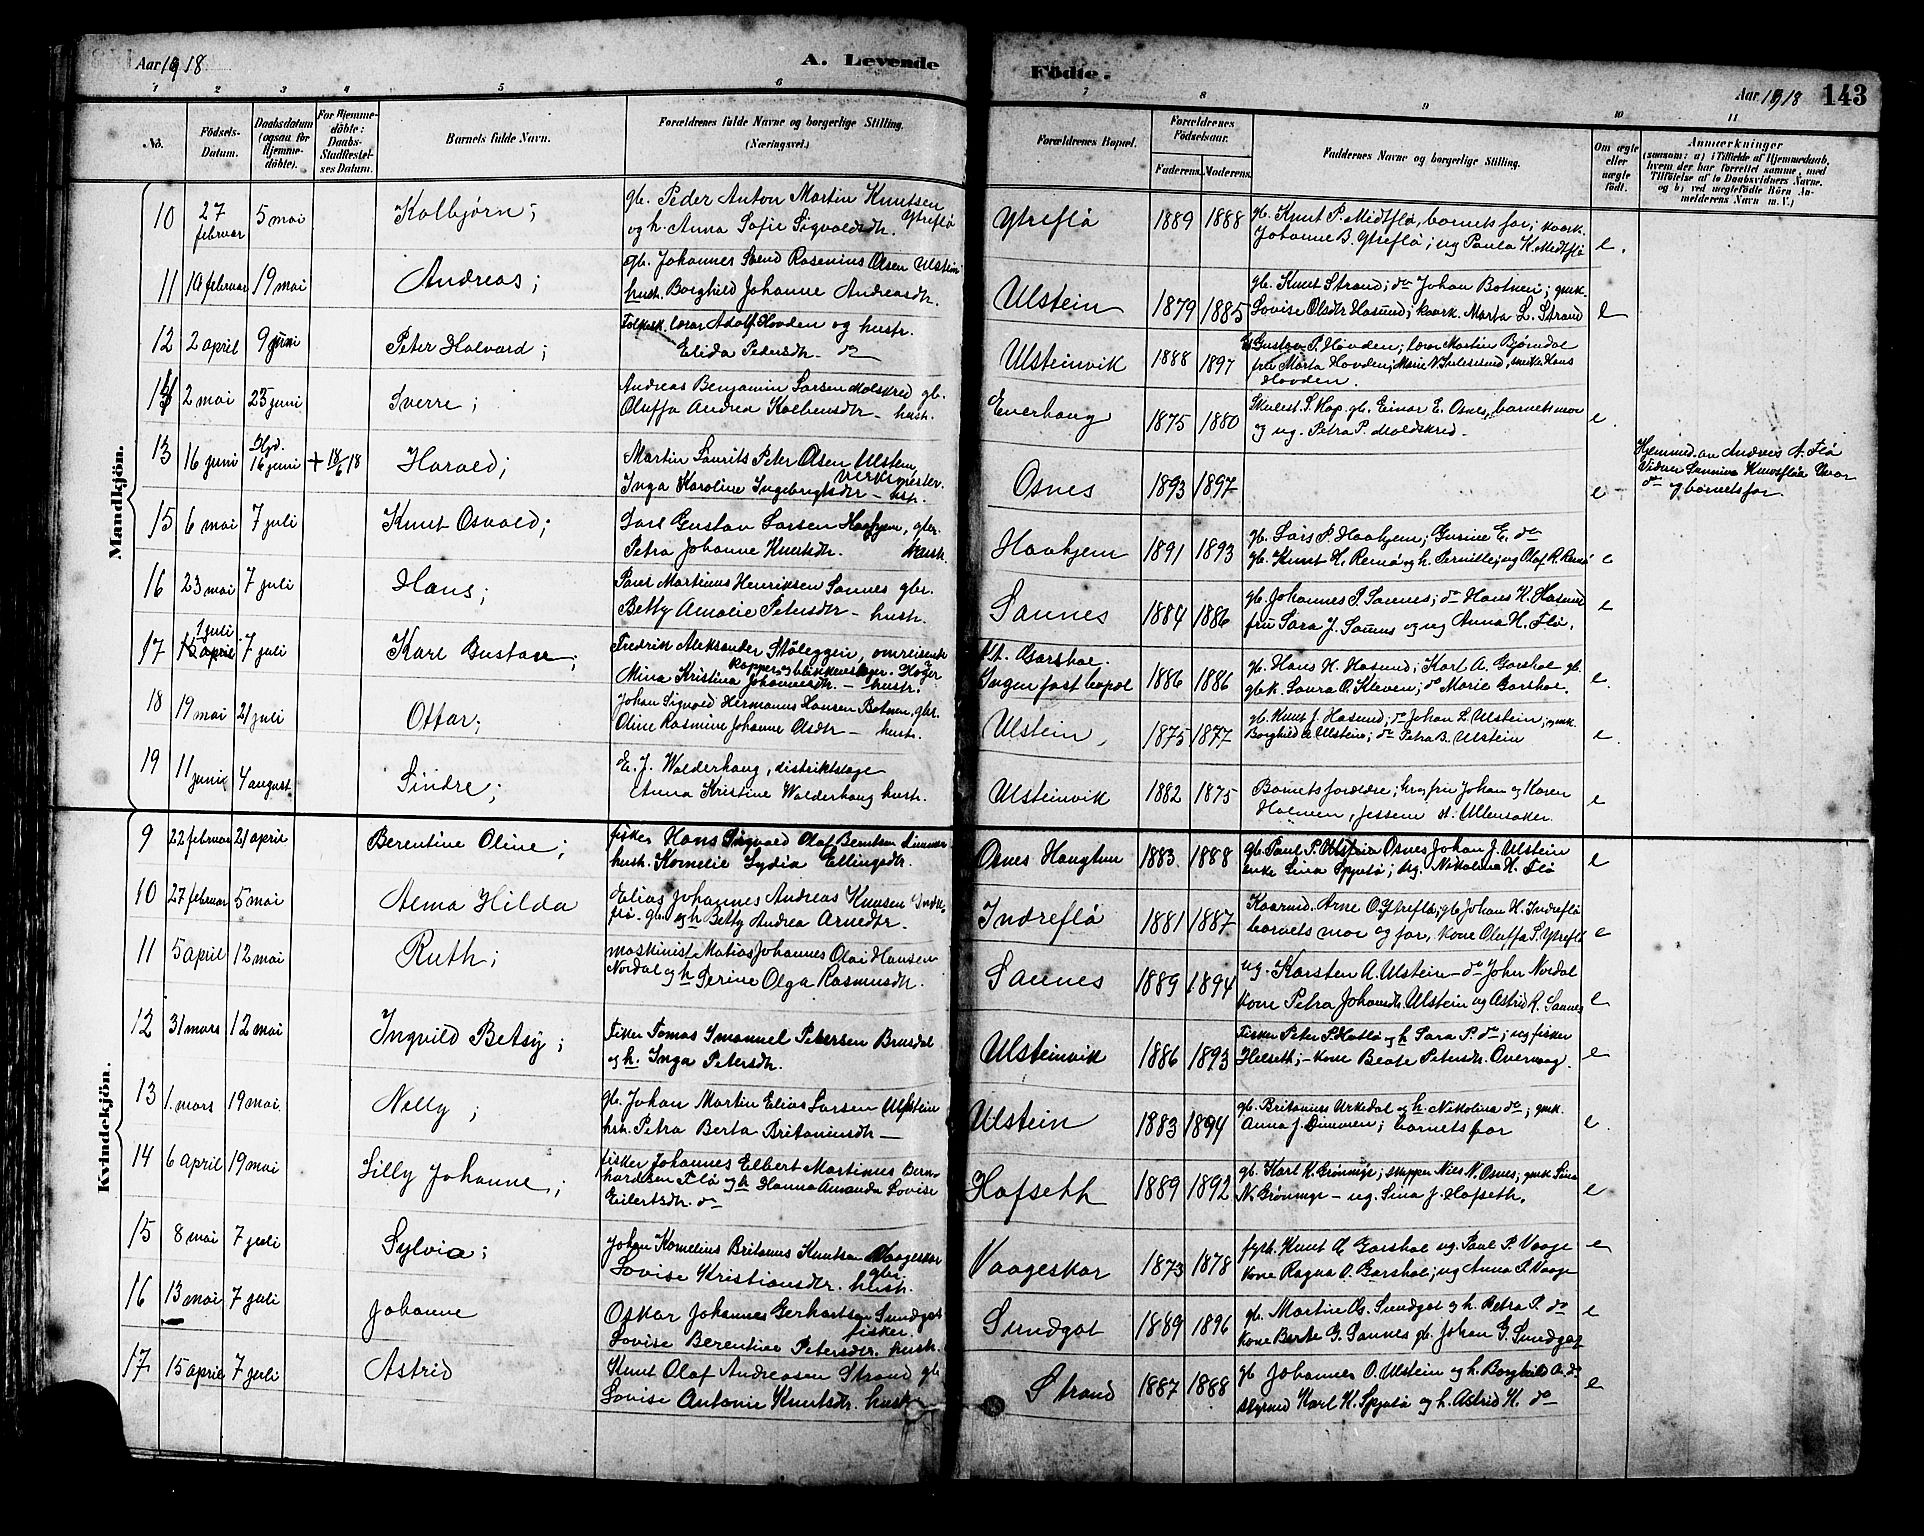 Aar 1918
A. Levende
Födte.
Aar 1918
143
1 2 3 4 5 6
7 8 9 10 11
No.
Födsels-
Datum.
Daabsdatum
(ogsaa for
Hjemme-
döbte).
For Hjemme-
döbte:
Daabs-
Stadfæstel-
ses Datum.
Barnets fulde Navn.
Forældrenes fulde Navne og borgerlige Stilling.
(Næringsvei.)
Forældrenes Bopæl.
Forældrenes
Födselsaar.
Faderens. Moderens.
Faddernes Navne og borgerlige Stilling.
Om ægte
eller
uægte
født.
Anmærkninger
(saasom: a) i Tilfælde af Hjemmedaab,
hvem der har forrettet samme, med
Tilföielse af to Daabsvidners Navne.
og b) ved uegtefödte Börn An-
melderens Navn m. V.)
Mandkjön.
10 27 februar 5 mai Kolbjørn; gb. Peder Anton Martin Knutsen Ytreflø
og h. Anna Sofie Sigvaldsdtr.
Ytreflø 1889 1888 gb. Knut P. Midtflø, barnets far; kaark.
Johanne B. Ytreflø; ug Paula K. Midtflø e.
11 19 februar 19 mai Andreas; gb. Johannes Svend Rasenius Olsen Ulstein
hustr. Borghild Johanne Andreasdtr.
Ulstein 1879 1885 gb. Knut Strand; do Johan Botnen; gmk.
Lovise Olsdtr Hasund; kaark. Marta L. Strand e
12 2 april 9 juni Peter Halvard; Folkesk. lærar Adolf Hovden og hustr.
Elida Pedersdtr. do
Ulsteinvik 1888 1897 Gustav P. Hovden; lærar Martin Bjørndal
fru Marta Hovden, Marie N. Hans
Hovden.
14 2 mai 23 juni Sverre; Andreas Benjamin Larsen Molskred gb.
Oluffa Andrea Kolbensdtr - hustr.
Everhaug 1875 1880 Skulest. S. Hop. gb. Einar E. Osnes, barnets mor
og ug. Petra P. Moldskred. e.
13 16 juni Hjd. 16 juni + 18/6 18 Harald; Martin Laurits Peter Olsen Ulstein,
verksmester.
Inga Karoline Ingebrigtsdtr - hstr.
Osnes 1893 1897 e
Hjemmed. av Andreas A. Flø
Vidner Sunniva Knutsflø
do og barnets far
15 6 mai 7 juli Knut Osvald; Carl Gustav Larsen Haahjem, gbr.
Petra Johanne Knutsdtr. hustr.
Haahjem 1891 1893 gb. Lars P. Haahjem; Gurine E. do
gb. Knut H. Remø og h. Pernille; ug Olaf R. Remø e
16 23 mai 7 juli Hans; Paul Martinus Henriksen Saunes gbr.
Betty Amalie Petersdtr - hustr.
Saunes 1884 1886 gb. Johannes P. Saunes; do Hans K. Hasund
fru Sara J. Saunes og ug Anna H. Flø. e
17 1 juli 7 juli Karl Gustav; Fredrik Aleksander Støleggen, omreisende
Kopper og blikkenslager.
Mina Kristina Johannesdtr. - hustr.
Pt. Garshol.
Ingen fast bopæl 1886 1886 gb. Hans H. Hasund; Karl A. Garshol gb.
gbk. Laura O. Kleven; do Marie Garshol. e.
18 19 mai 21 juli Ottar; Johan Sigvald Hermanus Hansen Botnen, gbr.
Oline Rasmine Johanne Olsdtr - hustr.
Ulstein, 1875 1877 gb. Knut J. Hasund; do Johan L. Ulstein; gmk.
Borghild A. Ulstein; do Petra B. Ulstein e.
19 11 juni 4 august Sindre; E. J. Walderhaug, distriktslæge
Anna Kristine Walderhaug hustr.
Ulsteinvik 1882 1875 Barnets forældre; hr og fru Johan og Karen
Holmen, A. Ullensaker. e
Kvindekjön.
9 22 februar 21 april Berentine Oline; fisker Hans Sigvald Olaf Berntsen Dimmen
hustr. Kornelie Lydia Ellingsdtr.
Osnes Haugtun 1883. 1888 gb. Paul P. Osnes Johan J. Ulstein
enke Lina Spjutø; ug. Nikolina H. Flø e
10 27 februar 5 mai Alma Hilda Elias Johannes Andreas Knutsen Indre-
flø. gb. og h Betty Andrea Arnedtr.
Indreflø 1881 1887 Kaarmd. Arne O. Ytreflø; gb Johan H. Indreflø
barnets mor og far, kone Oluffa P. Ytreflø e
11 5 april 12 mai Ruth; maskinist Matias Johannes Olai Hansen
Nordal og h Gerine Olga Rasmusdtr.
Saunes 1889 1894 ug. Karsten A. Ulstein - do John Nordal
kone Petra Johansdtr Ulstein og Astrid R. Saunes e
12 31 mars 12 mai Ingvild Betsy; Fisker Tomas Imanuel Petersen Brusdal
og h. Inga Petersdtr.
Ulsteinvik 1886 1893 Fisker Peter P. Hatlø og h Sara P. do; ug fisker
Helseth; - kone Beate Petersdtr. Overvaag. e
13 1. mars 19 mai Nelly; gb. Johan Martin Elias Larsen Ulstein
hstr. Petra Berta Britaniusdtr -
Ulstein 1883 1894 gb. Britanius Urkedal og h. Nikolina do; gmk.
Anna J. Dimmen; barnets far e.
14 6 april 19 mai Lilly Johanne; fisker Johannes Elbert Martinus Bern-
hardsen Flø og h Hanna Amanda Lovise
Eilertsdtr. do
Hofseth 1889 1892 gb. Karl K. Grønnige; skipper Nils N. Osnes; gmk Lina
N. Grønnige - ug. Lina J. Hofseth. e
15 8 mai 7 juli Sylvia; Johan Kornelius Britanus Knutsen Vaageskar
gbr.
Lovise Kristiansdtr. hustr.
Vaageskar 1873 1878 fyrb. Knut A. Garshol ug. Paul P. Vaage
kone Ragna O. Garshol; ug Anna P. Vaage e
16 13 mai 7 juli Johanne Oskar Johannes Gerhartsen Sundgot
fisker.
Lovise Berentine Petersdtr. hustr.
Sundgot 1889 1896 gb. Martin Os. Sundgot og h. Petra P. do
kone Berte G. Saunes gb. Johan G. Sundgot e
17 15 april 7 juli Astrid Knut Olaf Andreasen Strand gb
Lovise Antonie Knutsdtr. hustr
Strand 1887 1888 gb Johannes O. Ulstein og h. Borghild A. do
Karl K. Spjutø og h. Astrid K. do e